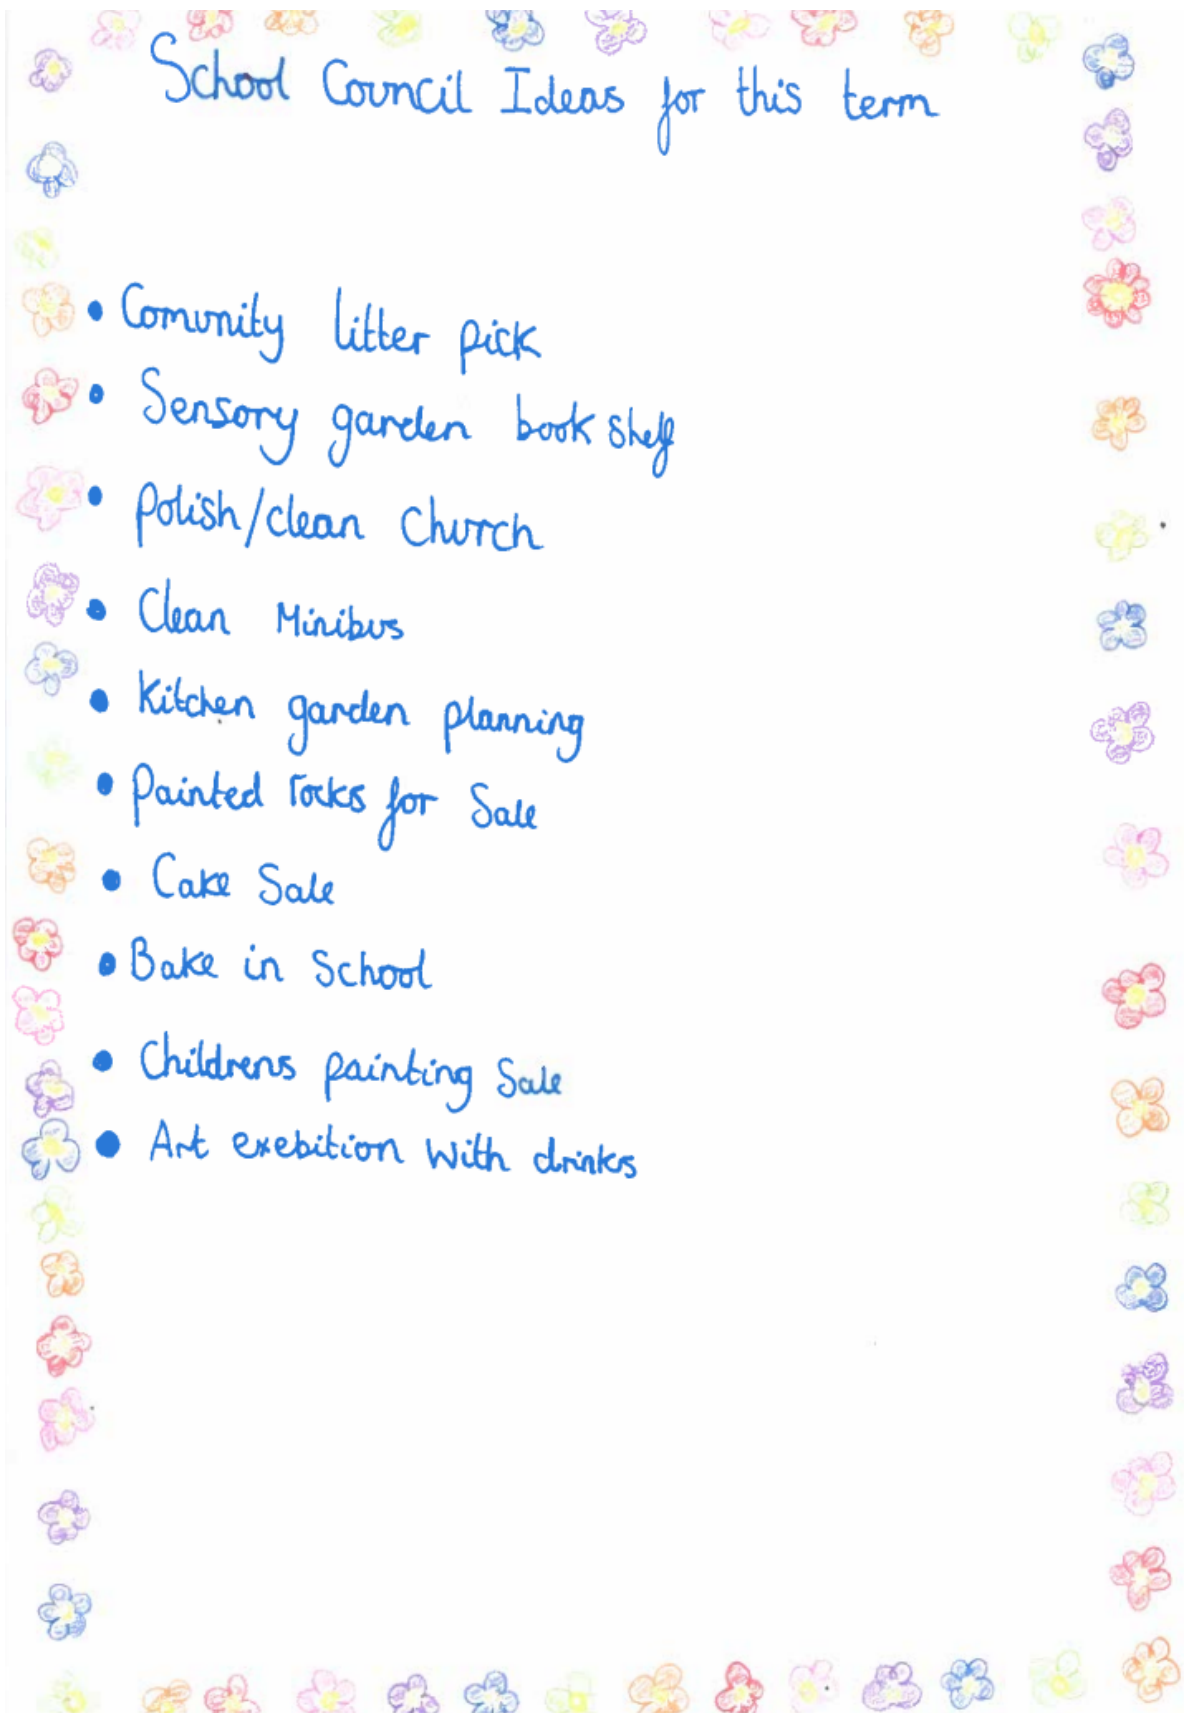 School Council Ideas for this term
• Comunity litter pick
• Sensory garden book shelf
• Polish/clean Church
• Clean Minibus
• Kitchen garden planning
• Painted rocks for Sale
• Cake Sale
• Bake in School
• Childrens painting Sale
• Art exebition with drinks